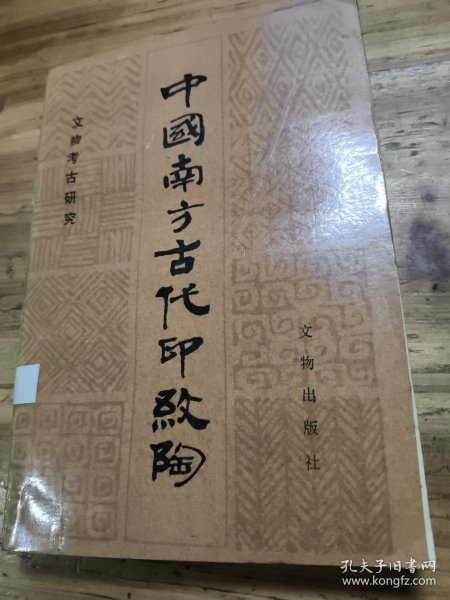 中國南方古代印紋陶
文物考古研究
文物出版社
孔夫子旧书网
www.kongfz.com